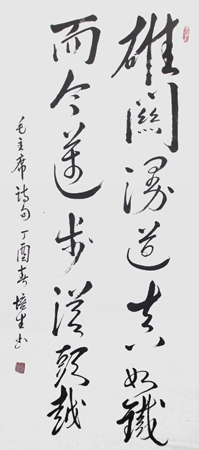 雄関漫道真如鐵
而今邁步從頭越
毛主席詩句丁酉春培生书